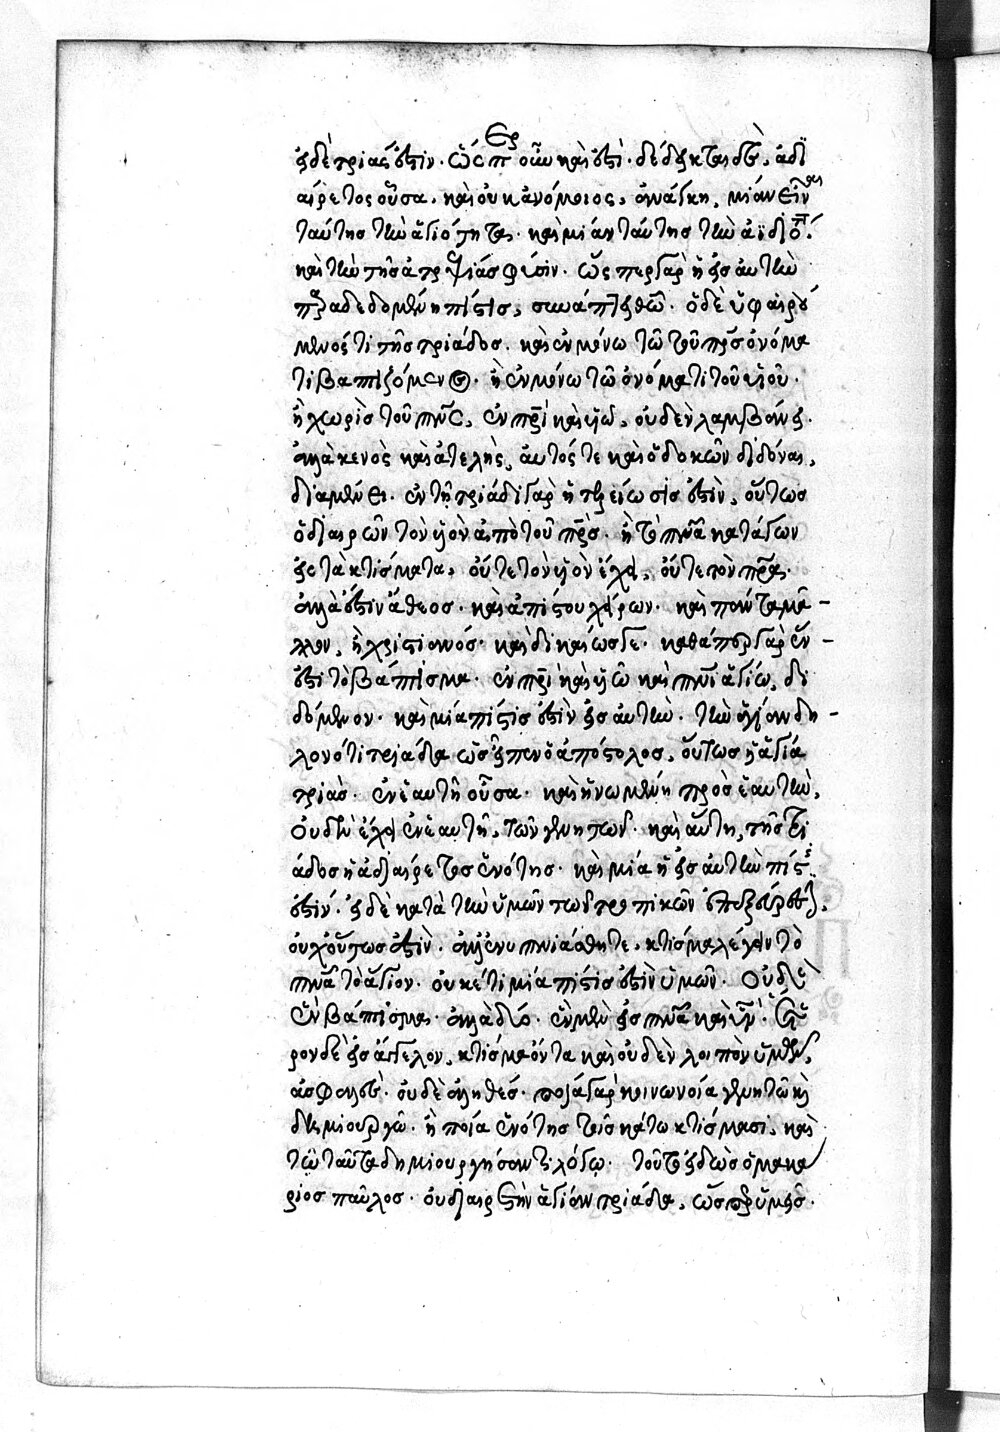 εἰ δὲ τριάς ἐστιν· ὥσπερ οὖν καὶ ἐστὶ· δέδεικται δὲ, ἀδι
αίρετος οὖσα, καὶ οὐκ ἀνόμοιος, ἀνάγκη, μίαν εἶναι
ταύτης τὴν ἁγιότητα· καὶ μίαν ταύτης τὴν ἀϊδιότ
καὶ τὴν τῆς ἀτρεψίας φύσιν· ὥσπερ γὰρ ἡ εἰς αὐτὴν
παραδεδομένη πίστις, συνάπτει θεῷ· ὁ δὲ ὑφαιρού
μενός τι τῆς τριάδος, καὶ ἐν μόνω τῶ τοῦ πρς ὀνόμα
τι βαπτιζόμενος· ἢ ἐν μόνω τῶ ὀνόματι τοῦ υἱοῦ·
ἢ χωρὶς τοῦ πνς, ἐν πρι καὶ υἱῶ, οὐδὲν λαμβάνει·
ἀλλὰ κενὸς καὶ ἀτελὴς, αὐτός τε καὶ ὁ δοκῶν διδόναι,
διαμένει· ἐν τῇ τριάδι γὰρ ἡ τελείωσίς ἐστὶν, οὕτως
ὁ διαιρῶν τὸν υἱὸν ἀπὸ τοῦ πρς· ἢ τὸ πνα κατάγων
εἰς τὰ κτίσματα, οὔτε τὸν υἱὸν ἔχει, οὔτε τὸν πρα·
ἀλλά ἐστιν ἄθεος· καὶ ἀπίστου χείρων· καὶ πάντα μᾶ-
λλον, ἢ χριστιανός· καὶ δικαίως γε· καθάπερ γὰρ ἕν
ἐστι τὸ βάπτισμα· ἐν πρι καὶ υἱῶ καὶ πνι ἁγίω, δι
δόμενον· καὶ μία πίστις ἐστὶν εἰς αὐτὴν· τὴν ἁγίαν δη-
λονότι τριάδα ὡς εἶπεν ὁ ἀπόστολος, οὕτως ἡ ἁγία
τριὰς· ἐν ἑαυτῇ οὖσα· καὶ ἡνωμένη πρὸς ἑαυτὴν,
οὐδὲν ἔχει ἐν ἑαυτῇ, τῶν γενητῶν· καὶ αὕτη, τῆς τρι
άδος ἡ ἀδιαίρετος ἑνότης· καὶ μία ἡ εἰς αὐτὴν πίστις
ἐστίν· εἰ δὲ κατὰ τὴν ὑμῶν τῶν τροπικῶν ἐπεξεύρεσιν,
οὐχ οὕτως ἐστὶν· ἀλλ' ἐνυπνιάσθητε, κτίσμα λέγειν τὸ
πνα τὸ ἅγιον· οὐκέτι μία πίστις ἐστὶν ὑμῶν· οὐδὲ
ἓν βάπτισμα· ἀλλὰ δύο· ἓν μὲν εἰς πρα καὶ υν· ἕτε
ρον δὲ εἰς ἄγγελον, κτίσμα ὄντα καὶ οὐδὲν λοιπὸν ὑμῖν,
ἀσφαλὲς· οὐδὲ ἀληθές· ποία γὰρ κοινωνία γενητῶ καὶ
δημιουργῶ· ἢ ποία ἑνότης τοῖς κάτω κτίσμασι, καὶ
τῶ ταῦτα δημιουργήσαντι λόγω· τοῦτο εἰδὼς ὁ μακά
ριος παῦλος· οὐ διαιρεῖ τὴν ἁγίαν τριάδα, ὥσπερ ὑμεῖς·